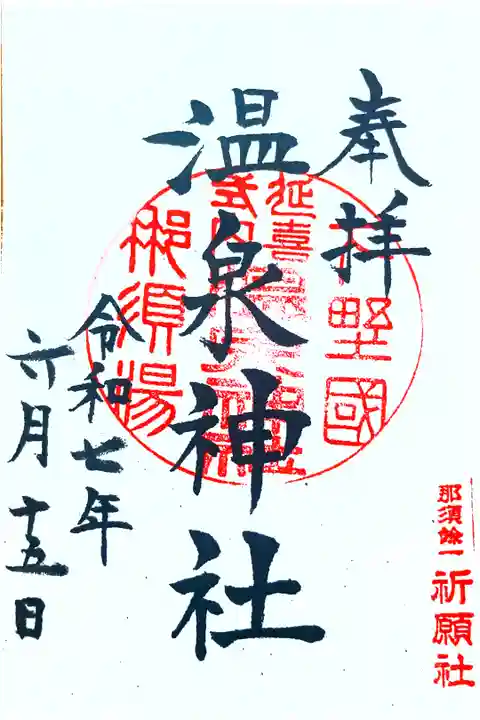 奉拝
温泉神社
令和七年
六月十五日
野國
延喜式内
那須湯
那須餘一
祈願社